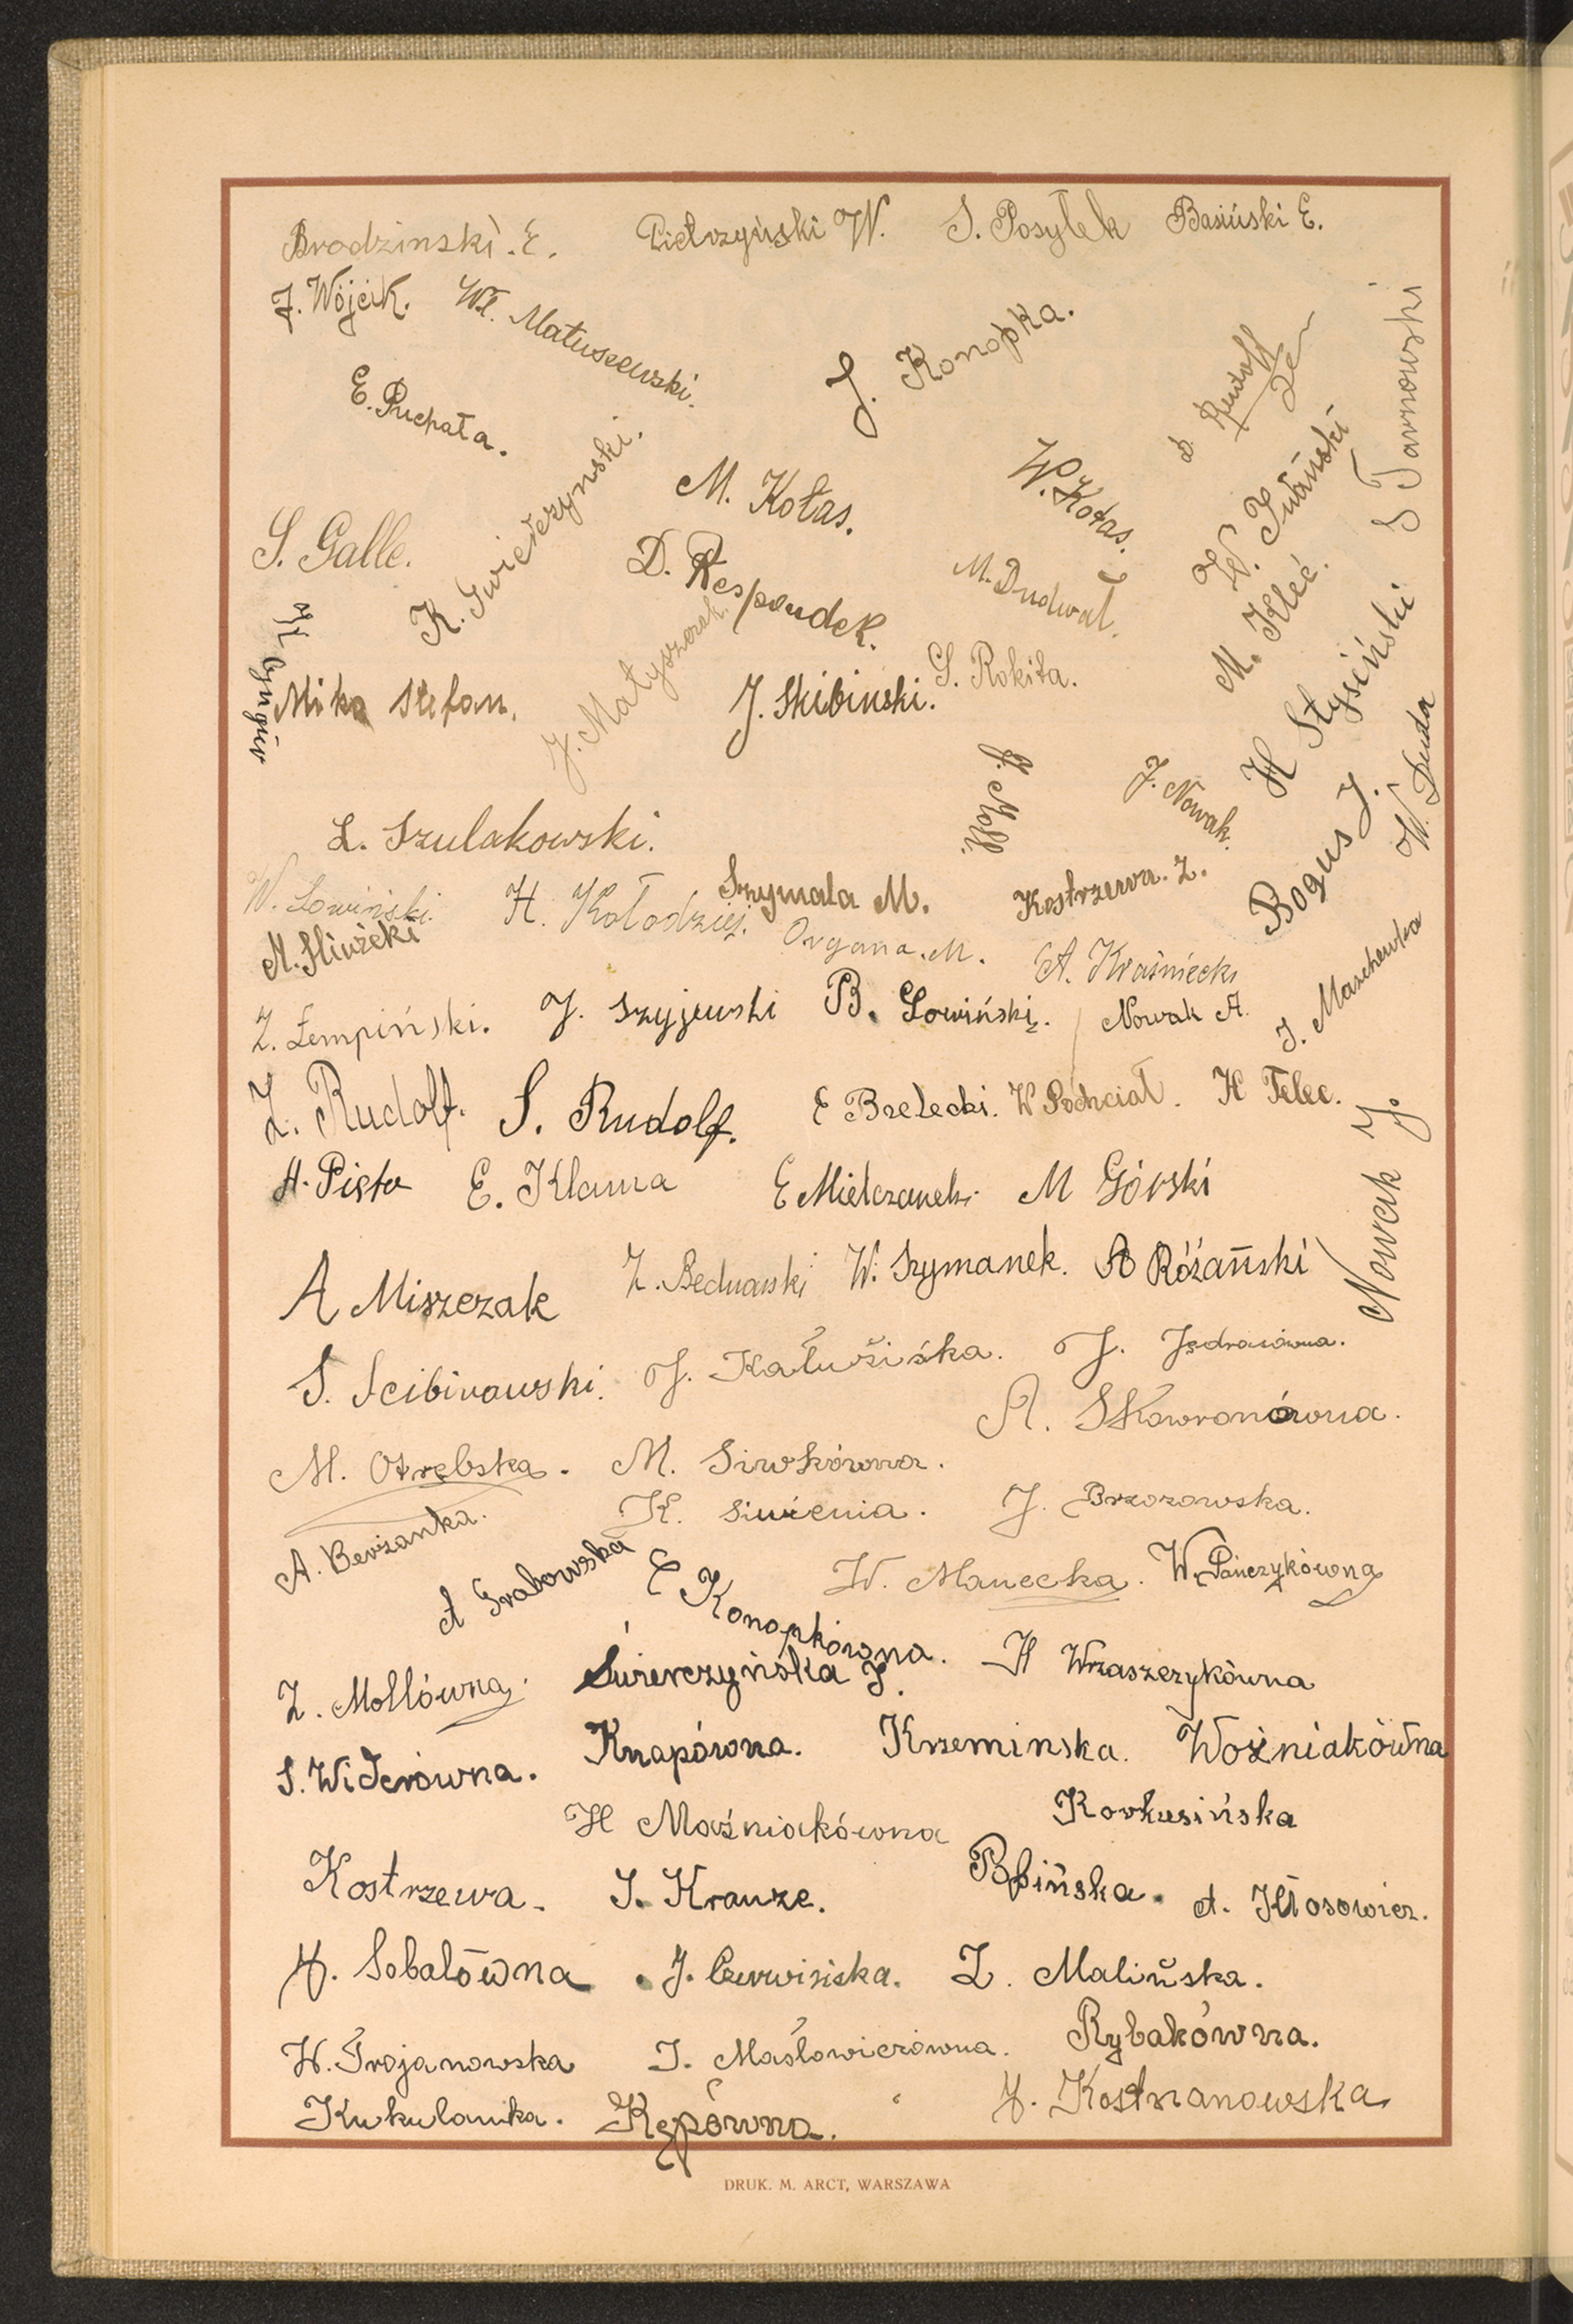 Brodzinski. E. Pietrzyński W. S. Posyłek Basiński E.
J. Wójcik. Wł. Matuszewski.
J. Konopka.
E. Puchała.
S. Tarnowski
K. Świeżezynski.
M. Kołas.
W. Kołas.
S. Galle.
D. Respondek.
M. Dudwał.
M. Kleć.
J. Matyszczak.
S. Rokita.
Mika Stefan.
J. Skibinski.
H Stysiński
W. Duda
J. Nowak.
Bogus J.
L. Szulakowski.
W. Łowiński.
H. Kołodziej.
Szymala M.
Kostrzewa. Z.
M. Śliwżeki
Organa. M.
A. Kraśniecki
J. Maschewka
Z. Łempiński. J. Szyjewski B. Łowiński. Nowak A.
Z. Rudolf. S. Rudolf. E Bzelecki. W Pochciał. H Telec.
H. Pięta E. Klama E Mielczanek. M Górski
Nowak J.
A Miszczak Z. Bednarski W. Szymanek. A Różański
S. Scibiwowski. J. Kałużiśka. J. Jędrasiówna.
A. Skowronówna.
M. Otrębska. M. Siwkówna.
K. Siwienia. J. Brzozowska.
A. Berżanka.
A Grabowska
E Konopkówna.
W. Manecka. W. Pańczykówna
Z. Mollówna. Świerczyńska J. H Wraszczykówna
S. Widerówna. Knapówna. Krzeminska. Woźniakówna
H Maźniakówna Korkusińska
Kostrzewa. J. Krauze. Bąbińska. A. Kłosowicz.
H. Sobalówna J. Czerwisiska. Z. Malińska.
W. Trojanowska J. Masłowiczówna. Rybakówna.
Kukulanka. Kępówna. H. Kostrzanowska
DRUK. M. ARCT, WARSZAWA